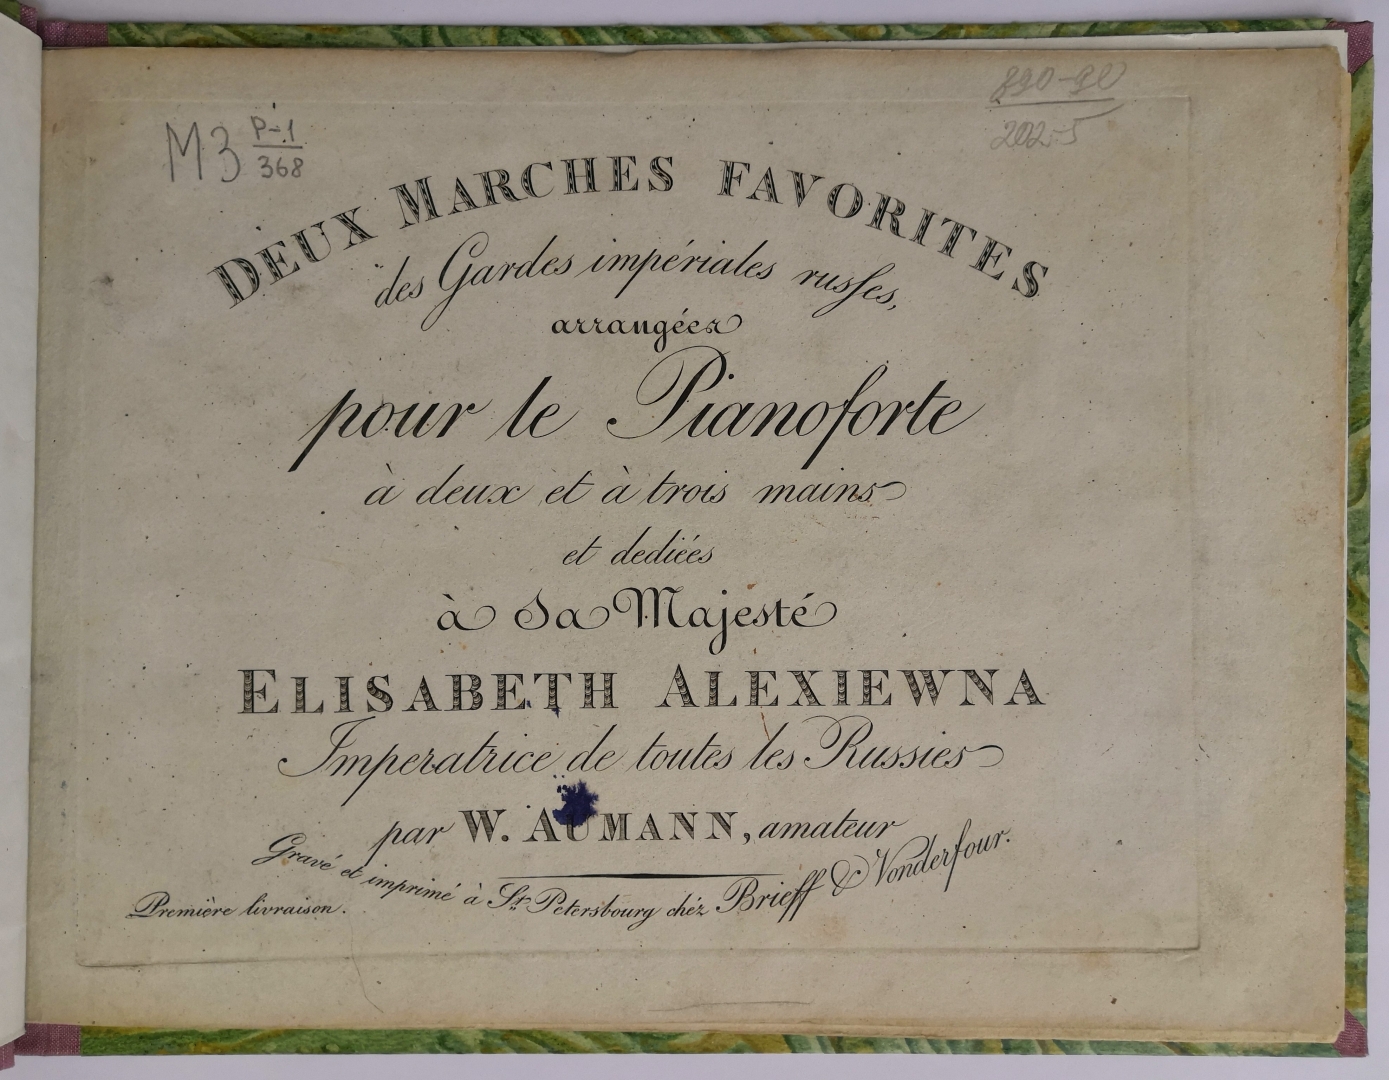 M3 P-1
368
890-90
202-5
DEUX MARCHES FAVORITES
des Gardes impériales russes,
arrangées
pour le Pianoforte
à deux et à trois mains
et dediées
à Sa Majesté
ELISABETH ALEXIEWNA
Imperatrice de toutes les Russies
par W. AUMANN, amateur
Gravé et imprimé à St. Petersbourg chéz Brieff & Vonderfour.
Première livraison.